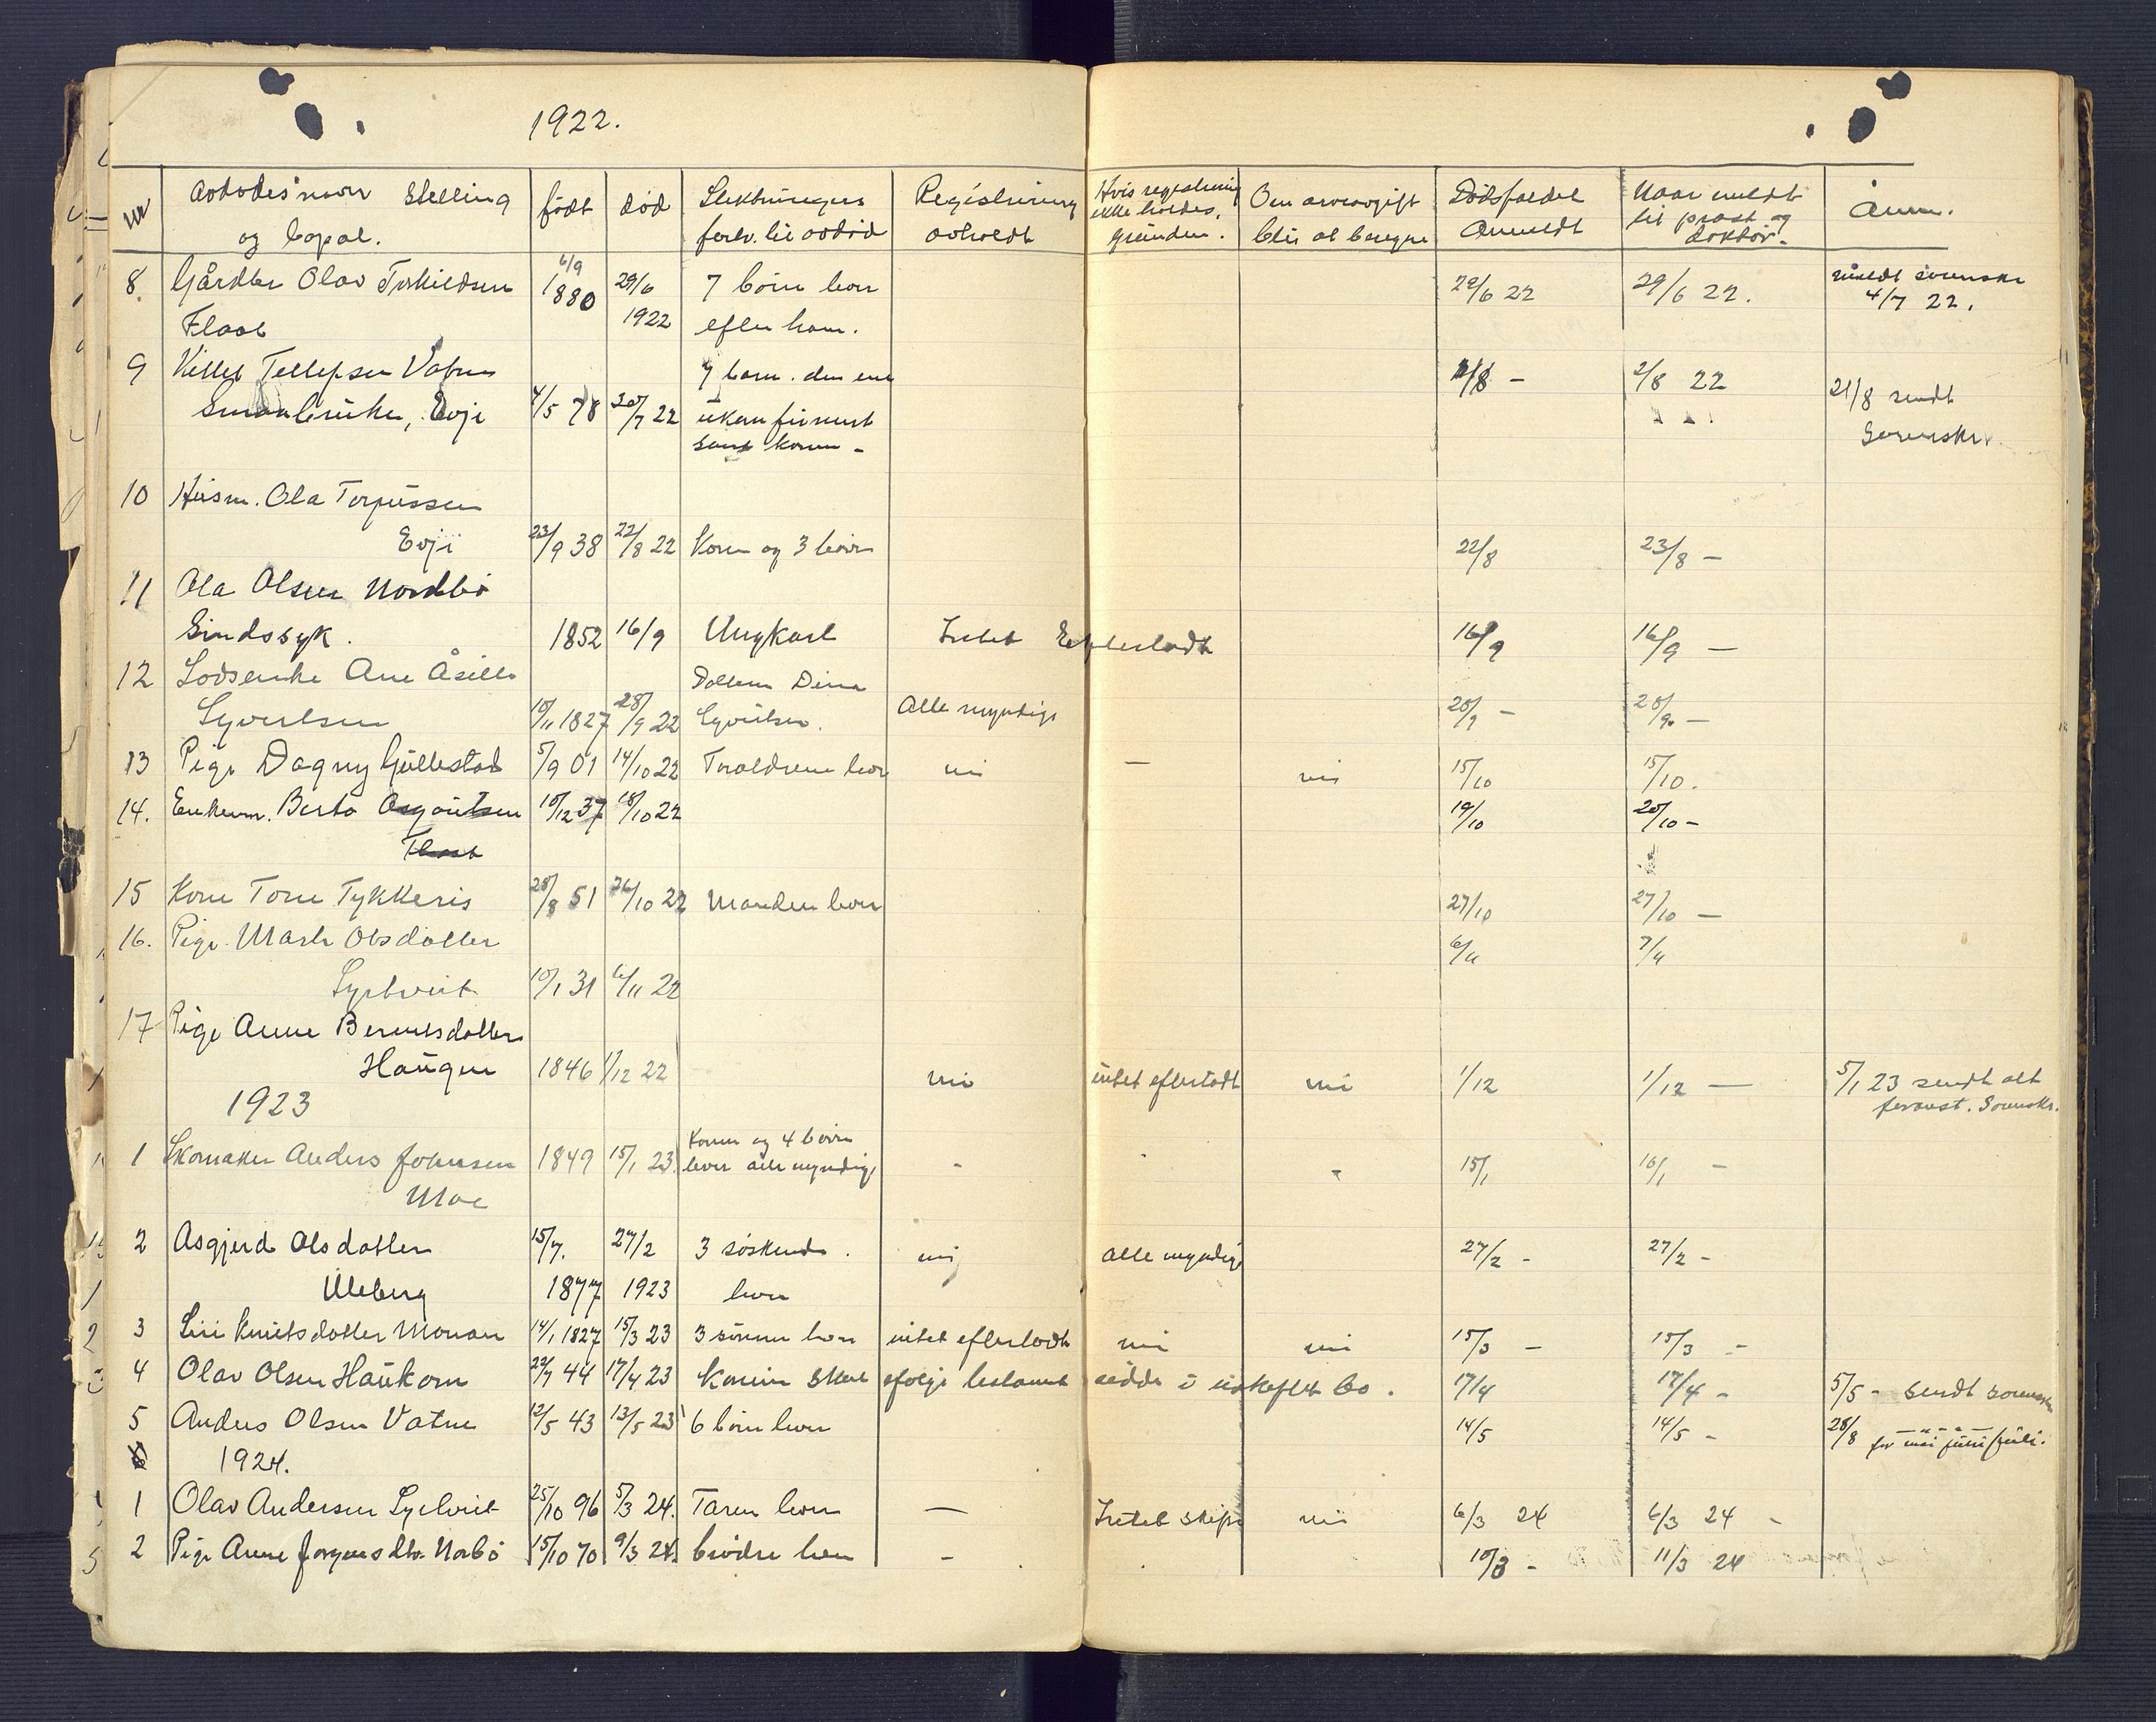 1922.
Nr | Avdødes navn Stelling og bopæl. | født | død | Slektninger forh. til avdød | Registrering avholdt | Hvis registrering ikke holdes, grunden. | Om arveavgift blir at beregne | Dødsfaldet Anmeldt | Naar meldt til prost og doktor. | Anm.
8. | Gårdbr Olav Torkildsen | 6/9 1880 | 29/6 | 7 börn lever | 29/6 22 | 29/6 22. | meldt sorenskr 4/7 22.
Flaat | 1922 | efter ham.
9 | Killel Tellefsen Vatne | 7 barn. den ene | 2/8 - | 2/8 22
Smaabruker, Evje | 4/5 78 | 30/7 22 | ukonfirmert | 21/8 sendt
samt kone - | Sorenskr.
10 | Husm. Ola Torjussen
Evje | 23/9 38 | 22/8 22 | Kone og 3 börn | 22/8 | 23/8 -
11 | Ola Olsen Nordbö
Sindssyk. | 1852 | 16/9 | Ungkarl | Intet Efterladt | 16/9 | 16/9 -
12 | Lodsenke Ane Åsille | Datteren Dina
Syvertsen | 10/11 1827 | 28/9 22 | Syvertsen. | Alle myndige | 28/9 - | 28/9 -
13 | Pige Dagny Gullestad | 5/9 01 | 14/10 22 | Foreldrene lever | nei | - | nei | 15/10 | 15/10.
14. | Enkem. Berta Asgautsen | 10/12 37 | 18/10 22 | 19/10 | 20/10 -
Flaat
15 | Kone Tone Tykkeris | 28/8 51 | 26/10 22 | Manden lever | 27/10 | 27/10 -
16. | Pige Mari Olsdatter | 6/11 | 7/11
Syrtveit | 10/1 31 | 6/11 22
17 | Pige Anne Berentsdatter
Haugen | 1846 | 1/12 22 | nei | intet efterladt | nei | 1/12 | 1/12 - | 5/1 23 sendt alt
1923 | foranst. Sorenskr.
1 | Skomaker Anders Johnsen | 1849 | 15/1 23. | Kone og 4 börn lever alle myndige | - | 15/1 | 16/1 -
Moe
2 | Asgjerd Olsdatter | 15/7. | 27/2 | 3 söskende. | nei | alle myndige | 27/2 - | 27/2 -
Uleberg | 1877 | 1923 | lever
3 | Siri Knutsdatter Monan | 14/1 1827 | 15/3 23 | 3 sönner lever | intet efterladt | nei | nei | 15/3 - | 15/3 -
4 | Olav Olsen Haukom | 22/7 44 | 17/4 23 | Konen skal efölge bestamt sidde i uskiftet bo. | 17/4 | 17/4 - | 5/5 - sendt sorenskr
5 | Anders Olsen Vatne | 12/5 43 | 13/5 23 | 6 börn lever | 14/5 | 14/5 - | 28/8 - " - " - for mai juni juli.
6 | 1924.
1 | Olav Andersen Syrtveit | 25/10 96 | 5/3 24. | Faren lever | - | Intet skifte | nei | 6/3 24 | 6/3 24 -
2 | Pige Anne Jorgensdtr. Norbö | 15/10 70 | 9/3 24. | brödre lever | - | 10/3 - | 11/3 24